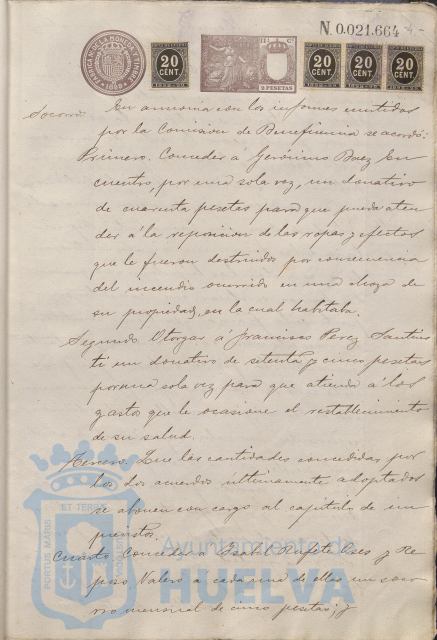 N. 0.021.664
FABRICA N. DE LA MONEDA Y TIMBRE
1899
20 CENT.
2 PESETAS
20 CENT.
20 CENT.
20 CENT.
Socorros
En armonia con los informes emitidos
por la Comision de Beneficencia se acordó:
Primero. Conceder á Gerónimo Baez En
cuentro, por una sola vez, un donativo
de cuarenta pesetas para que pueda aten
der á la reposicion de las ropas y efectos
que le fueron destruidos por consecuencia
del incendio ocurrido en una choza de
su propiedad, en la cual habitaba.
Segundo Otorgar á Francisco Perez Santies
ti un donativo de setenta y cinco pesetas
por una sola vez para que atienda á los
gastos que le ocasione el restablecimiento
de su salud.
Tercero. Que las cantidades concedidas por
los dos acuerdos ultimamente adoptados
se abonen con cargo al capitulo de im
previstos.
Cuarto Conceder á Isabel y Re
Valero á cada una de ellas un socor
ro mensual de cinco pesetas; y
PORTUS MARIS ET TERRAE CUSTODIA
Ayuntamiento de
HUELVA